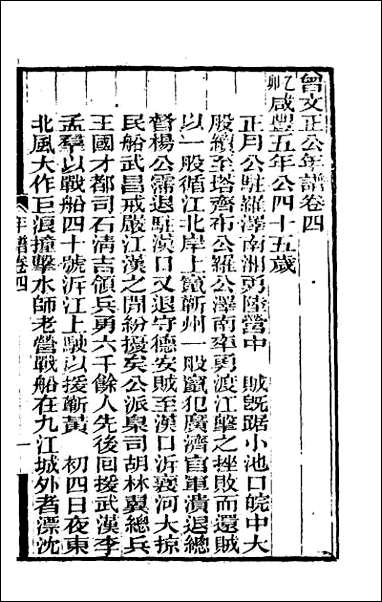 曾文正公年譜卷四
乙卯咸豐五年公四十五歲
正月公駐羅澤南湘勇陸營中　賊旣踞小池口皖中大
股續至塔齊布公羅公澤南率勇渡江擊之挫敗而還賊
以一股循江北岸上竄蘄州一股竄犯廣濟官軍潰退總
督楊公霈退駐漢口又退守德安賊至漢口泝襄河大掠
民船武昌戒嚴江漢之閒紛擾矣公派臬司胡林翼總兵
王國才都司石淸吉領兵勇六千餘人先後回援武漢李
孟羣以戰船四十號泝江上駛以援蘄黃　初四日夜東
北風大作巨浪撞擊水師老營戰船在九江城外者漂沈
年譜卷四
一